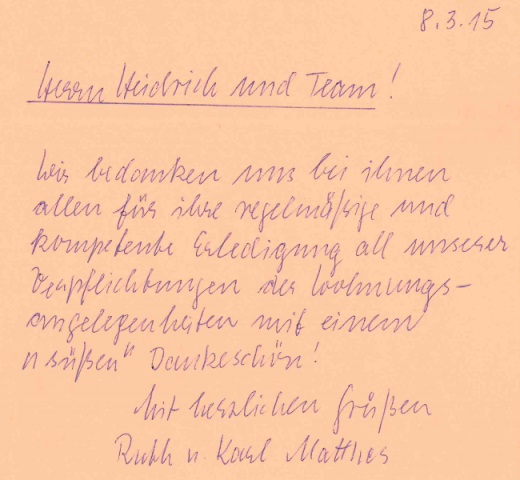 8.3.15
Herrn Heidrich und Team!
Wir bedanken uns bei ihnen
allen für ihre regelmäßige und
kompetente Erledigung all unserer
Verpflichtungen der Wohnungs-
angelegenheiten mit einem
„süßen" Dankeschön!
Mit herzlichen Grüßen
Ruth u. Karl Matthes